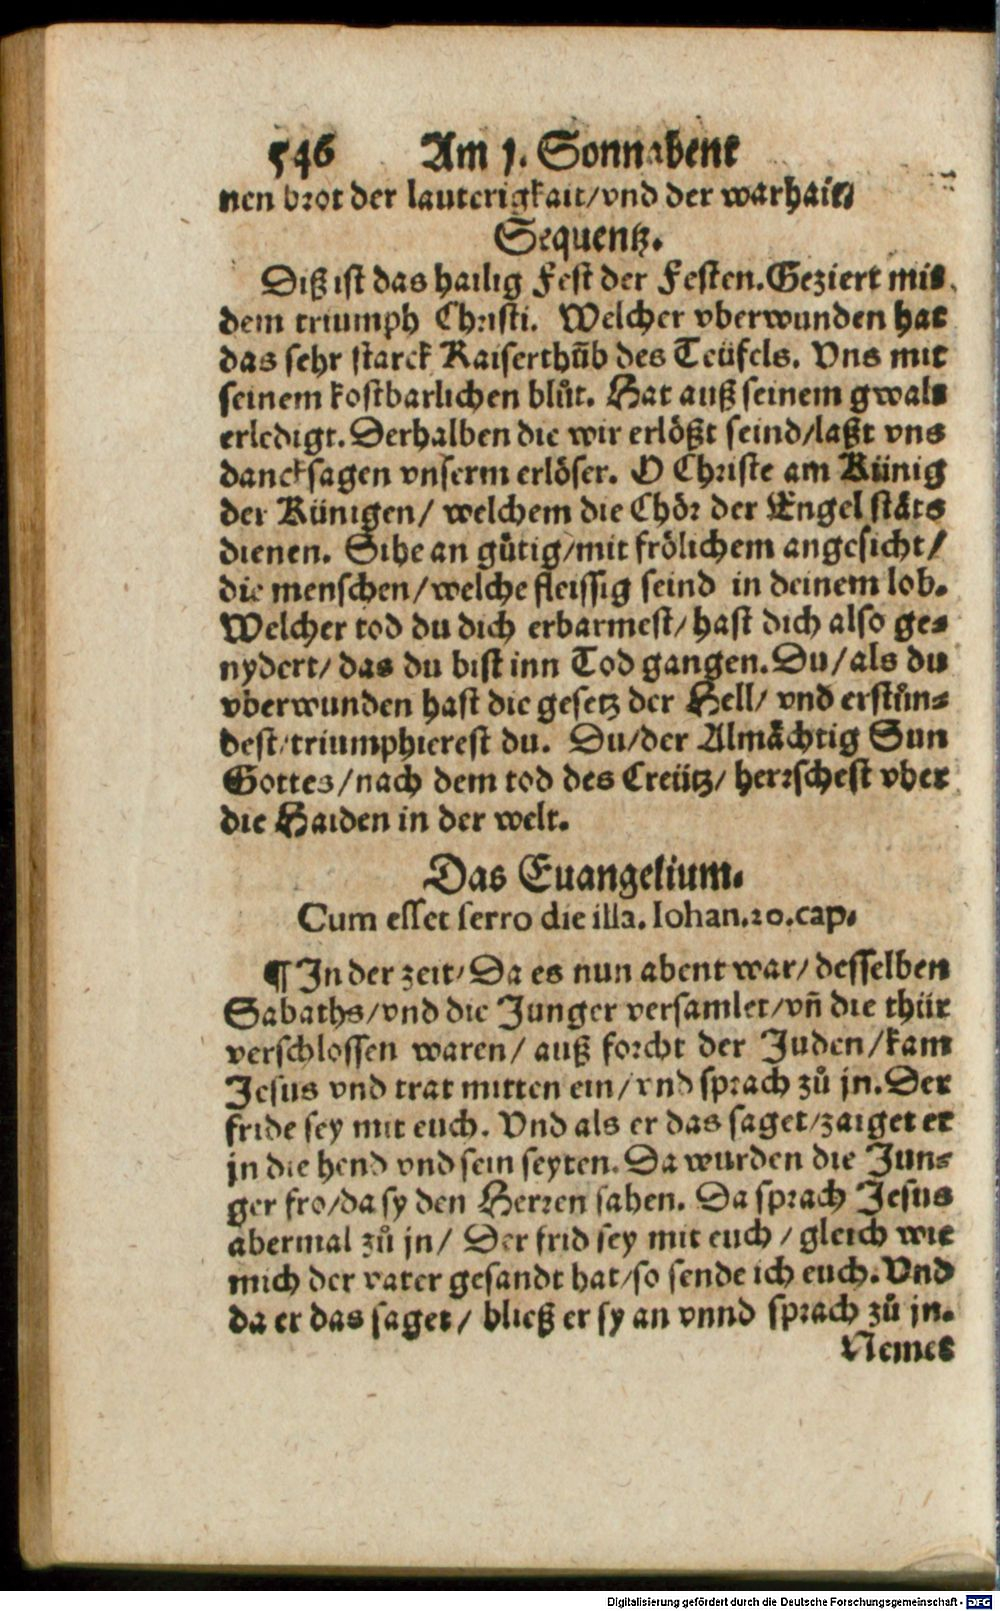 546 Am 1. Sonnabent
nen brot der lauterigkait/vnd der warhait/
Sequentz.
Diß ist das hailig Fest der Festen. Geziert mit
dem triumph Christi. Welcher vberwunden hat
das sehr starck Kaiserthůb des Teüfels. Vns mit
seinem kostbarlichen blůt. Hat auß seinem gwalt
erledigt. Derhalben die wir erlößt seind/laßt vns
dancksagen vnserm erlöser. O Christe am Künig
der Künigen/ welchem die Chör der Engel stäts
dienen. Sihe an gütig/mit frölichem angesicht/
die menschen/welche fleissig seind in deinem lob.
Welcher tod du dich erbarmest/hast dich also ge-
nydert/das du bist inn Tod gangen. Du/als du
vberwunden hast die gesetz der Hell/ vnd erstůn-
dest/triumphierest du. Du/der Almächtig Sun
Gottes/nach dem tod des Creütz/ herrschest vber
die Haiden in der welt.
Das Euangelium.
Cum esset serro die illa. Iohan.20.cap.
¶ In der zeit/Da es nun abent war/desselben
Sabaths/vnd die Junger versamlet/vñ die thür
verschlossen waren/ auß forcht der Juden/kam
Jesus vnd trat mitten ein/vnd sprach zů jn. Der
fride sey mit euch. Vnd als er das saget/zaiget er
jn die hend vnd sein seyten. Da wurden die Jun-
ger fro/da sy den Herren sahen. Da sprach Jesus
abermal zů jn/ Der frid sey mit euch/gleich wie
mich der vater gesandt hat/so sende ich euch. Vnd
da er das saget/ bließ er sy an vnnd sprach zů jn.
Nemet
Digitalisierung gefördert durch die Deutsche Forschungsgemeinschaft - DFG